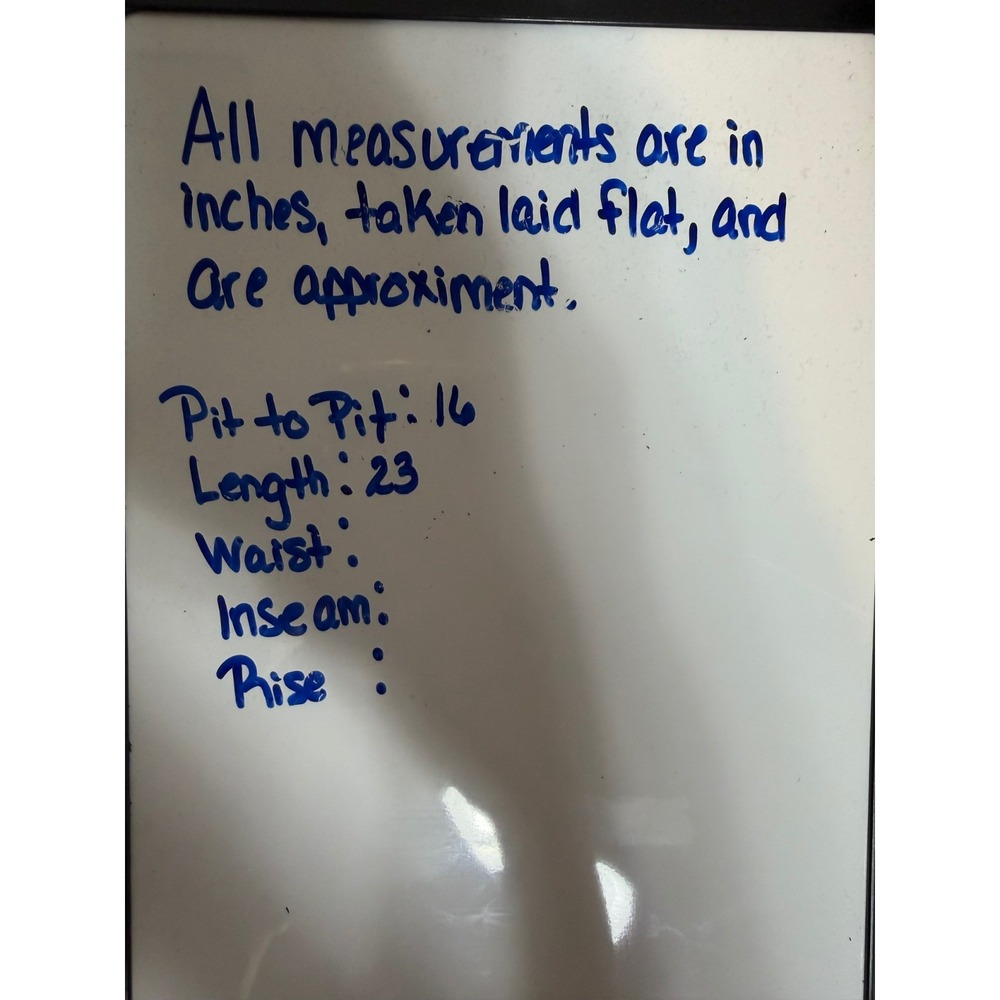 All measurements are in
inches, taken laid flat, and
are approximent.
Pit to Pit: 16
Length: 23
Waist:
Inseam:
Rise :